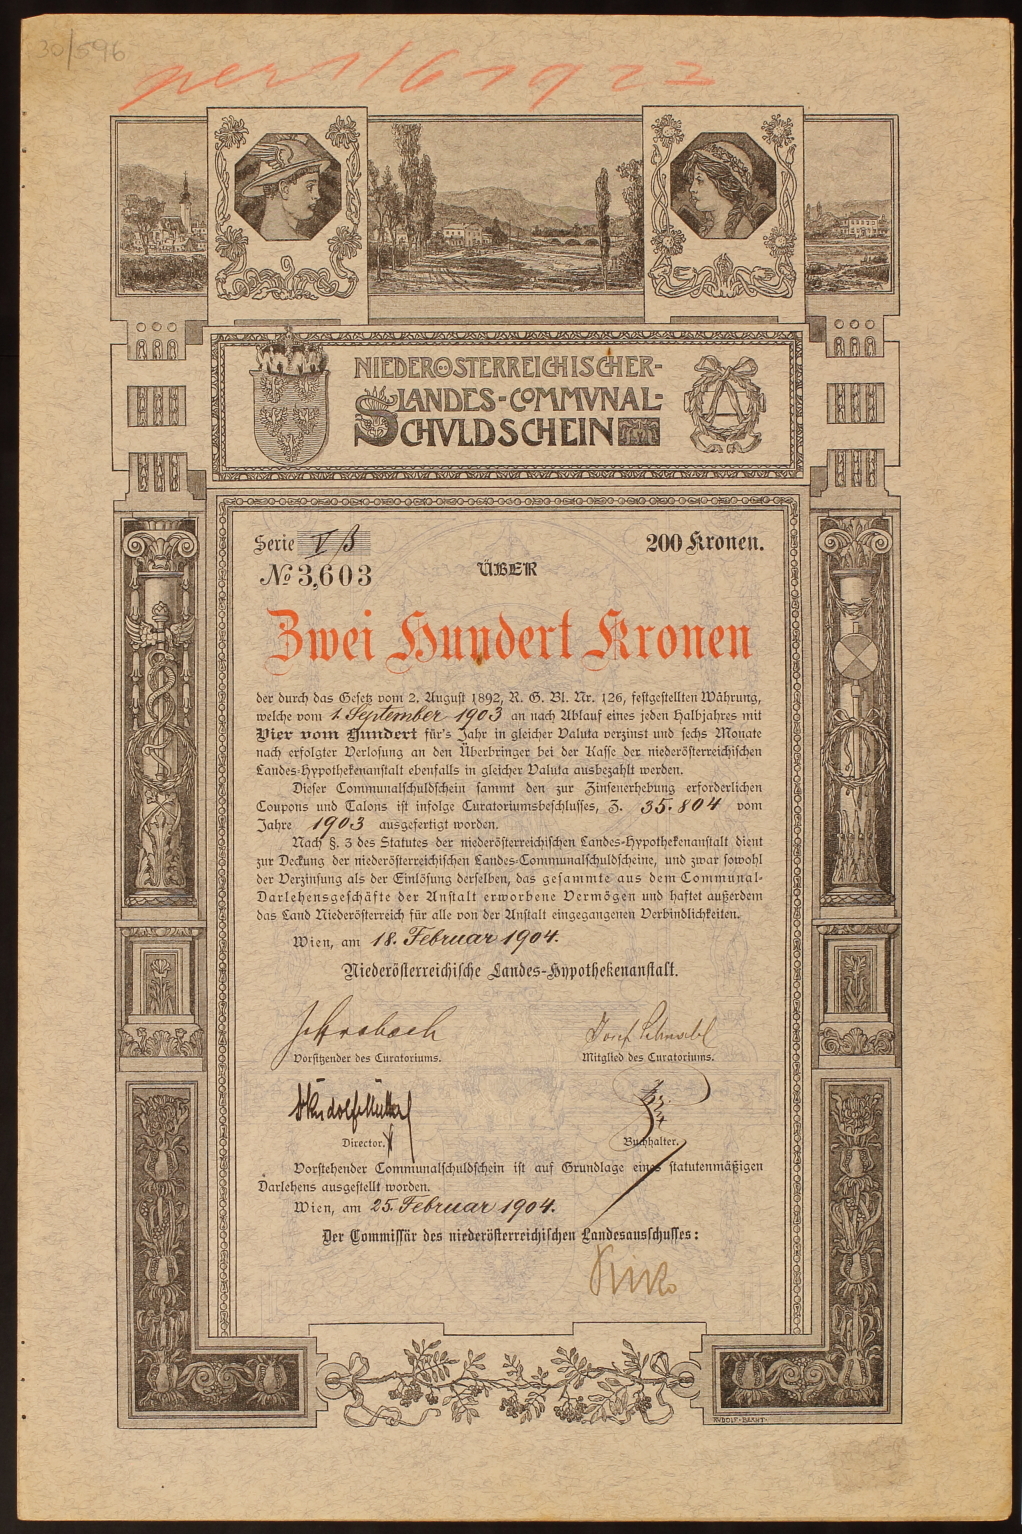 30/596
per 1/6 1922
NIEDERÖSTERREICHISCHER-
LANDES-COMMVNAL-
SCHVLDSCHEIN
Serie V B
200 Kronen.
No 3,603
ÜBER
Zwei Hundert Kronen
der durch das Gesetz vom 2. August 1892, R. G. Bl. Nr. 126, festgestellten Währung,
welche vom 1. September 1903 an nach Ablauf eines jeden Halbjahres mit
Vier vom Hundert für's Jahr in gleicher Valuta verzinst und sechs Monate
nach erfolgter Verlosung an den Überbringer bei der Kasse der niederösterreichischen
Landes-Hypothekenanstalt ebenfalls in gleicher Valuta ausbezahlt werden.
Dieser Communalschuldschein sammt den zur Zinsenerhebung erforderlichen
Coupons und Talons ist infolge Curatoriumsbeschlusses, Z. 35.804 vom
Jahre 1903 ausgefertigt worden.
Nach §. 3 des Statutes der niederösterreichischen Landes-Hypothekenanstalt dient
zur Deckung der niederösterreichischen Landes-Communalschuldscheine, und zwar sowohl
der Verzinsung als der Einlösung derselben, das gesammte aus dem Communal-
Darlehensgeschäfte der Anstalt erworbene Vermögen und haftet außerdem
das Land Niederösterreich für alle von der Anstalt eingegangenen Verbindlichkeiten.
Wien, am 18. Februar 1904.
Niederösterreichische Landes-Hypothekenanstalt.
Josef Schnabl
Vorsitzender des Curatoriums.
Mitglied des Curatoriums.
Director.
Buchhalter.
Vorstehender Communalschuldschein ist auf Grundlage eines statutenmäßigen
Darlehens ausgestellt worden.
Wien, am 25. Februar 1904.
Der Commissär des niederösterreichischen Landesausschusses:
RVDOLF